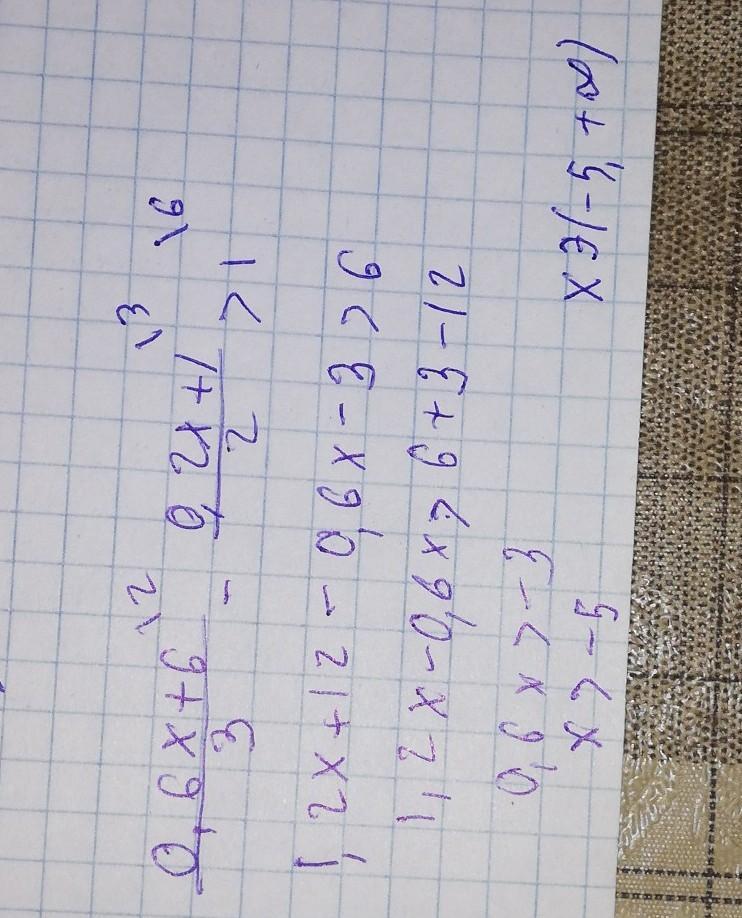 \frac{0,6x+6}{3}^{\2} - \frac{0,2x+1}{2}^{\3} > 1^{\6}
1,2x+12-0,6x-3>6
1,2x-0,6x>6+3-12
0,6x>-3
x>-5 x∋(-5,+∞)